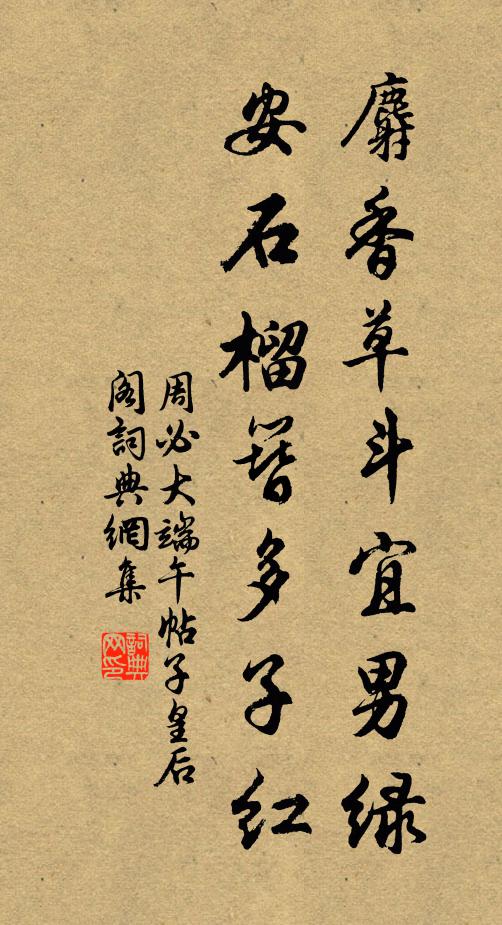 麝香草斗宜男绿
安石榴簪多子红
周必大端午帖子皇后
阁詞典網集
詞典网印